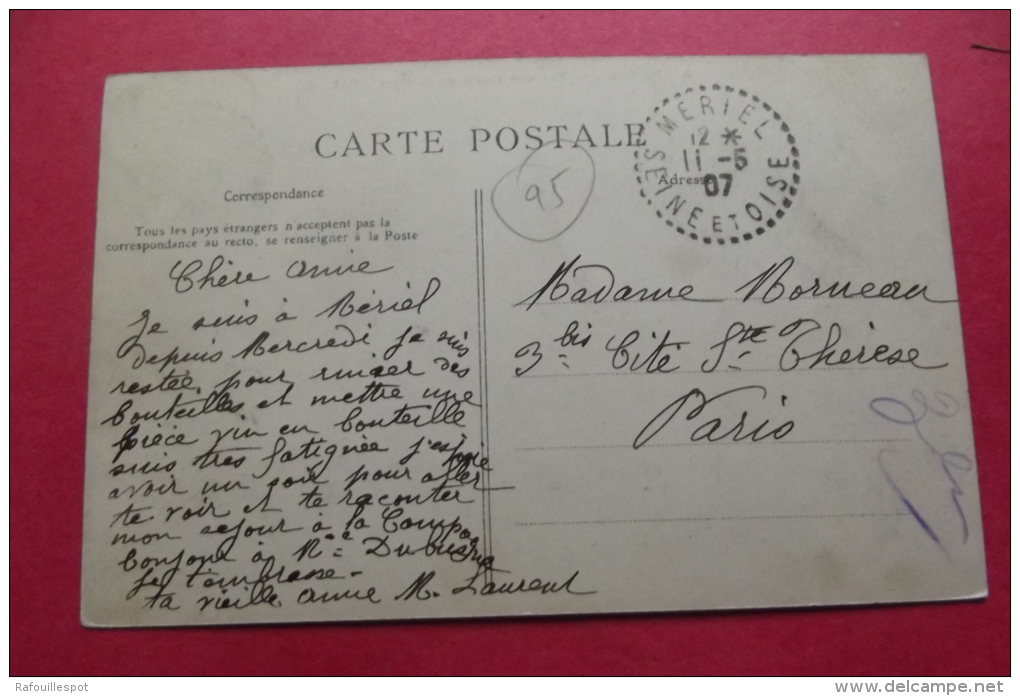 CARTE POSTALE
MERIEL
12 *
11 -5
07
SEINE ET OISE
95
Correspondance
Adresse
Tous les pays étrangers n'acceptent pas la
correspondance au recto, se renseigner à la Poste
Chère amie
Je suis à Mériel
depuis Mercredi je suis
restée pour rincer des
bouteilles et mettre une
pièce vin en bouteille
suis très fatiguée j'espère
avoir un soir pour aller
te voir et te raconter
mon séjour à la Campagne
bonjour à Mme Dubusc
Je t'embrasse
ta vieille amie M. Laurent
Madame Morneau
3 bis Cité Ste Thérèse
Paris
Rafouillespot
www.delcampe.net